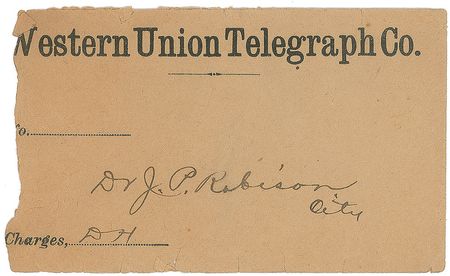 Western Union Telegraph Co.
No.
Dr J. P. Robison
City
Charges, DH